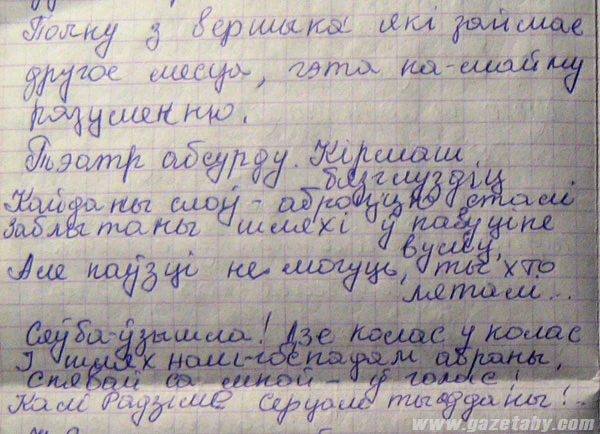 Пачну з вершыка які займае
другое месца, гэта па-мойму
разуменню.
Тэатр абсурду. Кірмаш
бязглуздіц
Кайданы слоў - абручына сталі
Заблытаны шляхі ў павуціне
вуліц,
Але паўзці не могуць, ты хто
лятаў...
Сяўба-ўзышла! Дзе колас у колас
І шлях намі-госпадам абраны,
Спявай са мной - ў голас!
Калі Радзіме серцам ты адданы!..
www.gazetaby.com